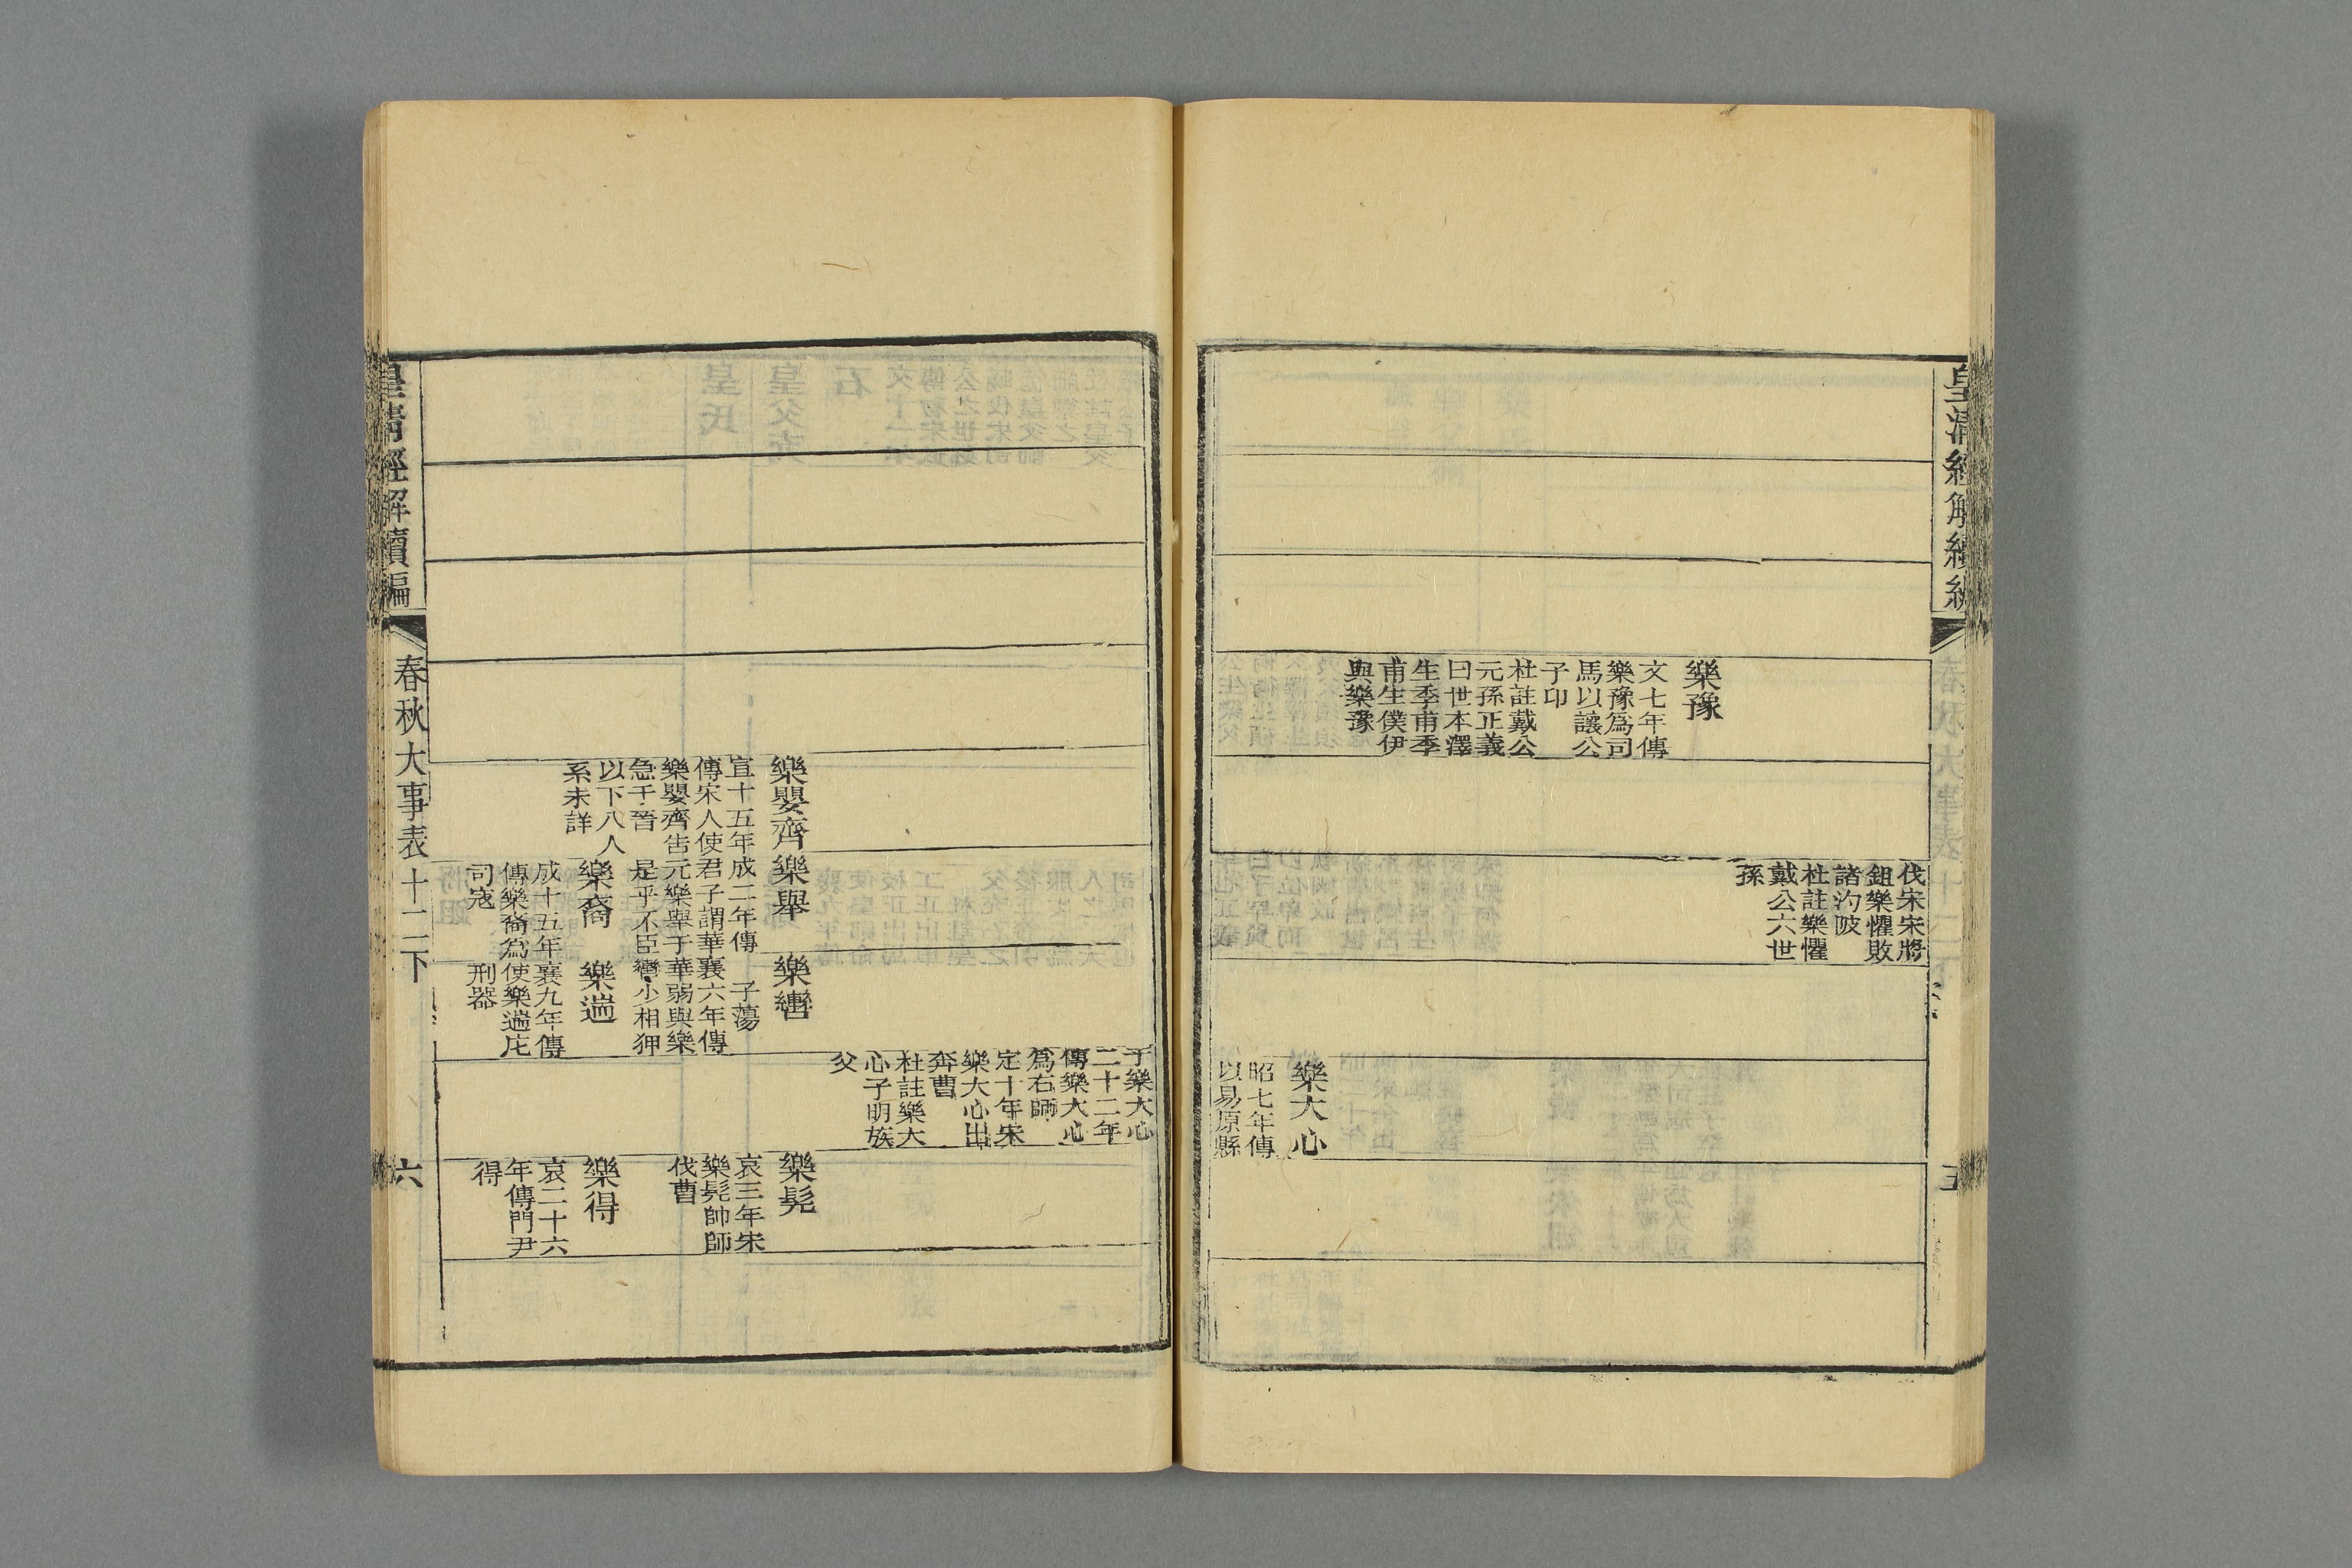 伐宋宋將
鉏樂懼敗
諸汋陂
杜註樂懼
戴公六世
孫
樂豫
文七年傳
樂豫爲司
馬以讓公
子印
杜註戴公
元孫正義
曰世本澤
生季甫季
甫生僕伊
與樂豫
樂大心
昭七年傳
以易原縣
于樂大心
二十二年
傳樂大心
爲右師
定十年宋
樂大心出
奔曹
杜註樂大
心子明族
父
樂嬰齊
宣十五年
傳宋人使
樂嬰齊告
急于晉
以下八人
系未詳
樂舉
成二年傳
君子謂華
元樂舉于
是乎不臣
樂轡
子蕩
襄六年傳
華弱與樂
轡少相狎
樂裔
成十五年
傳樂裔爲
司寇
樂遄
襄九年傳
使樂遄庀
刑器
樂髡
哀三年宋
樂髡帥師
伐曹
樂得
哀二十六
年傳門尹
得
皇清經解續編
春秋大事表十二下
六